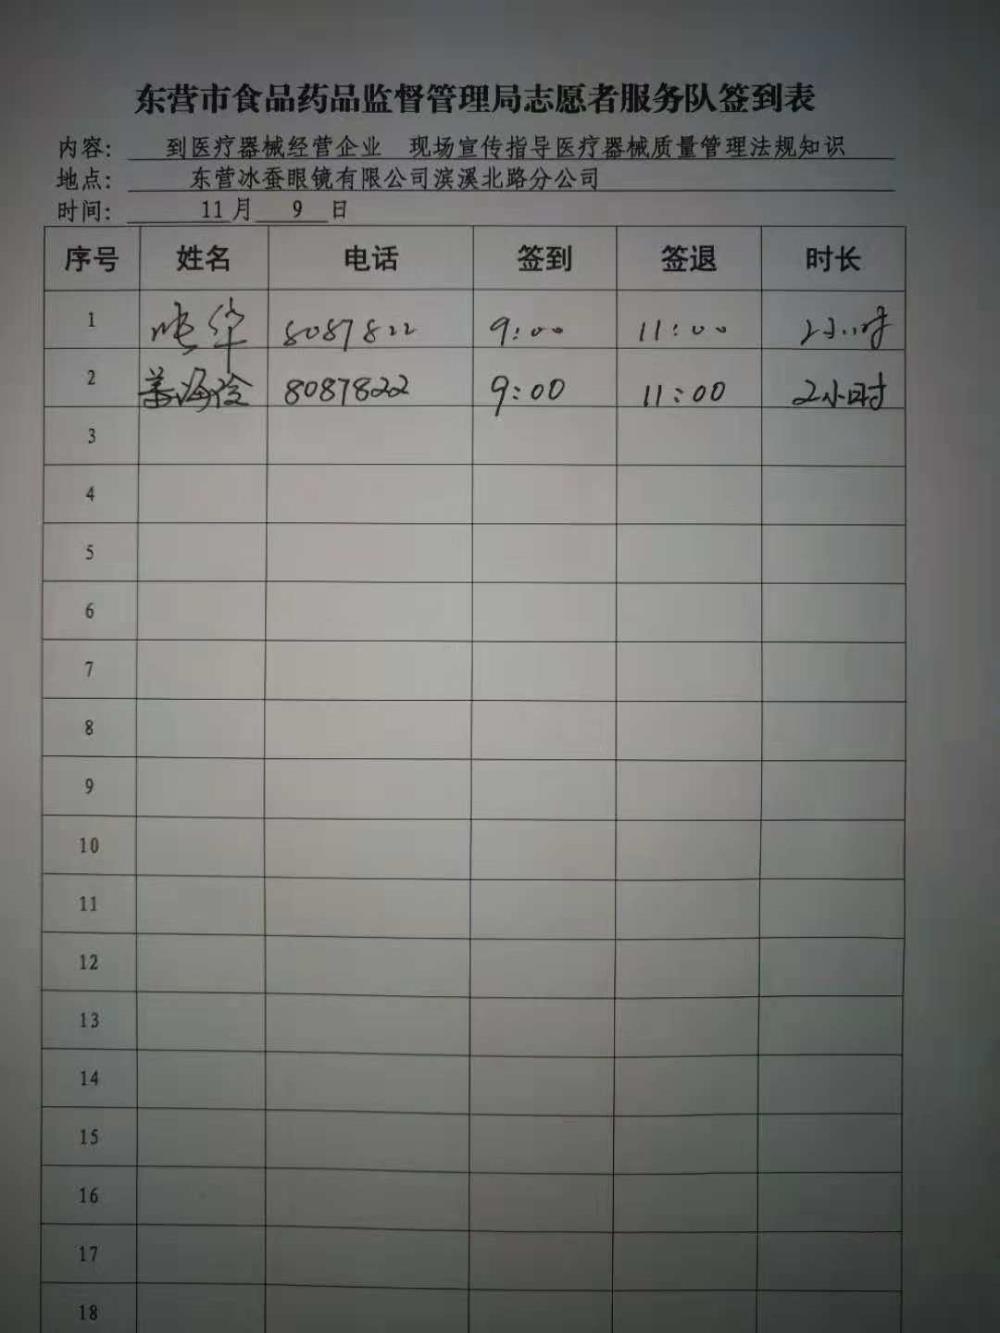 东营市食品药品监督管理局志愿者服务队签到表
内容: 到医疗器械经营企业 现场宣传指导医疗器械质量管理法规知识
地点: 东营冰蚕眼镜有限公司滨溪北路分公司
时间: 11月 9 日
序号 姓名 电话 签到 签退 时长
1 张华 8087822 9:00 11:00 2小时
2 8087822 9:00 11:00 2小时
3
4
5
6
7
8
9
10
11
12
13
14
15
16
17
18